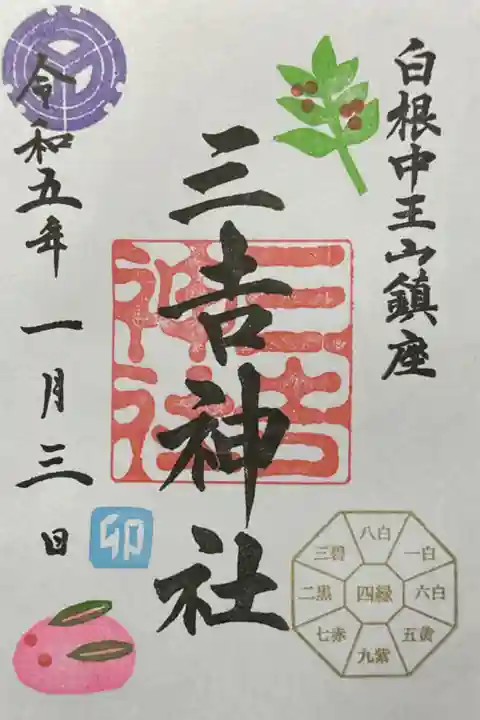 白根中王山鎮座
三吉神社
三吉
神社
令和五年一月三日
卯
八白
一白
六白
五黄
九紫
七赤
二黒
三碧
四緑